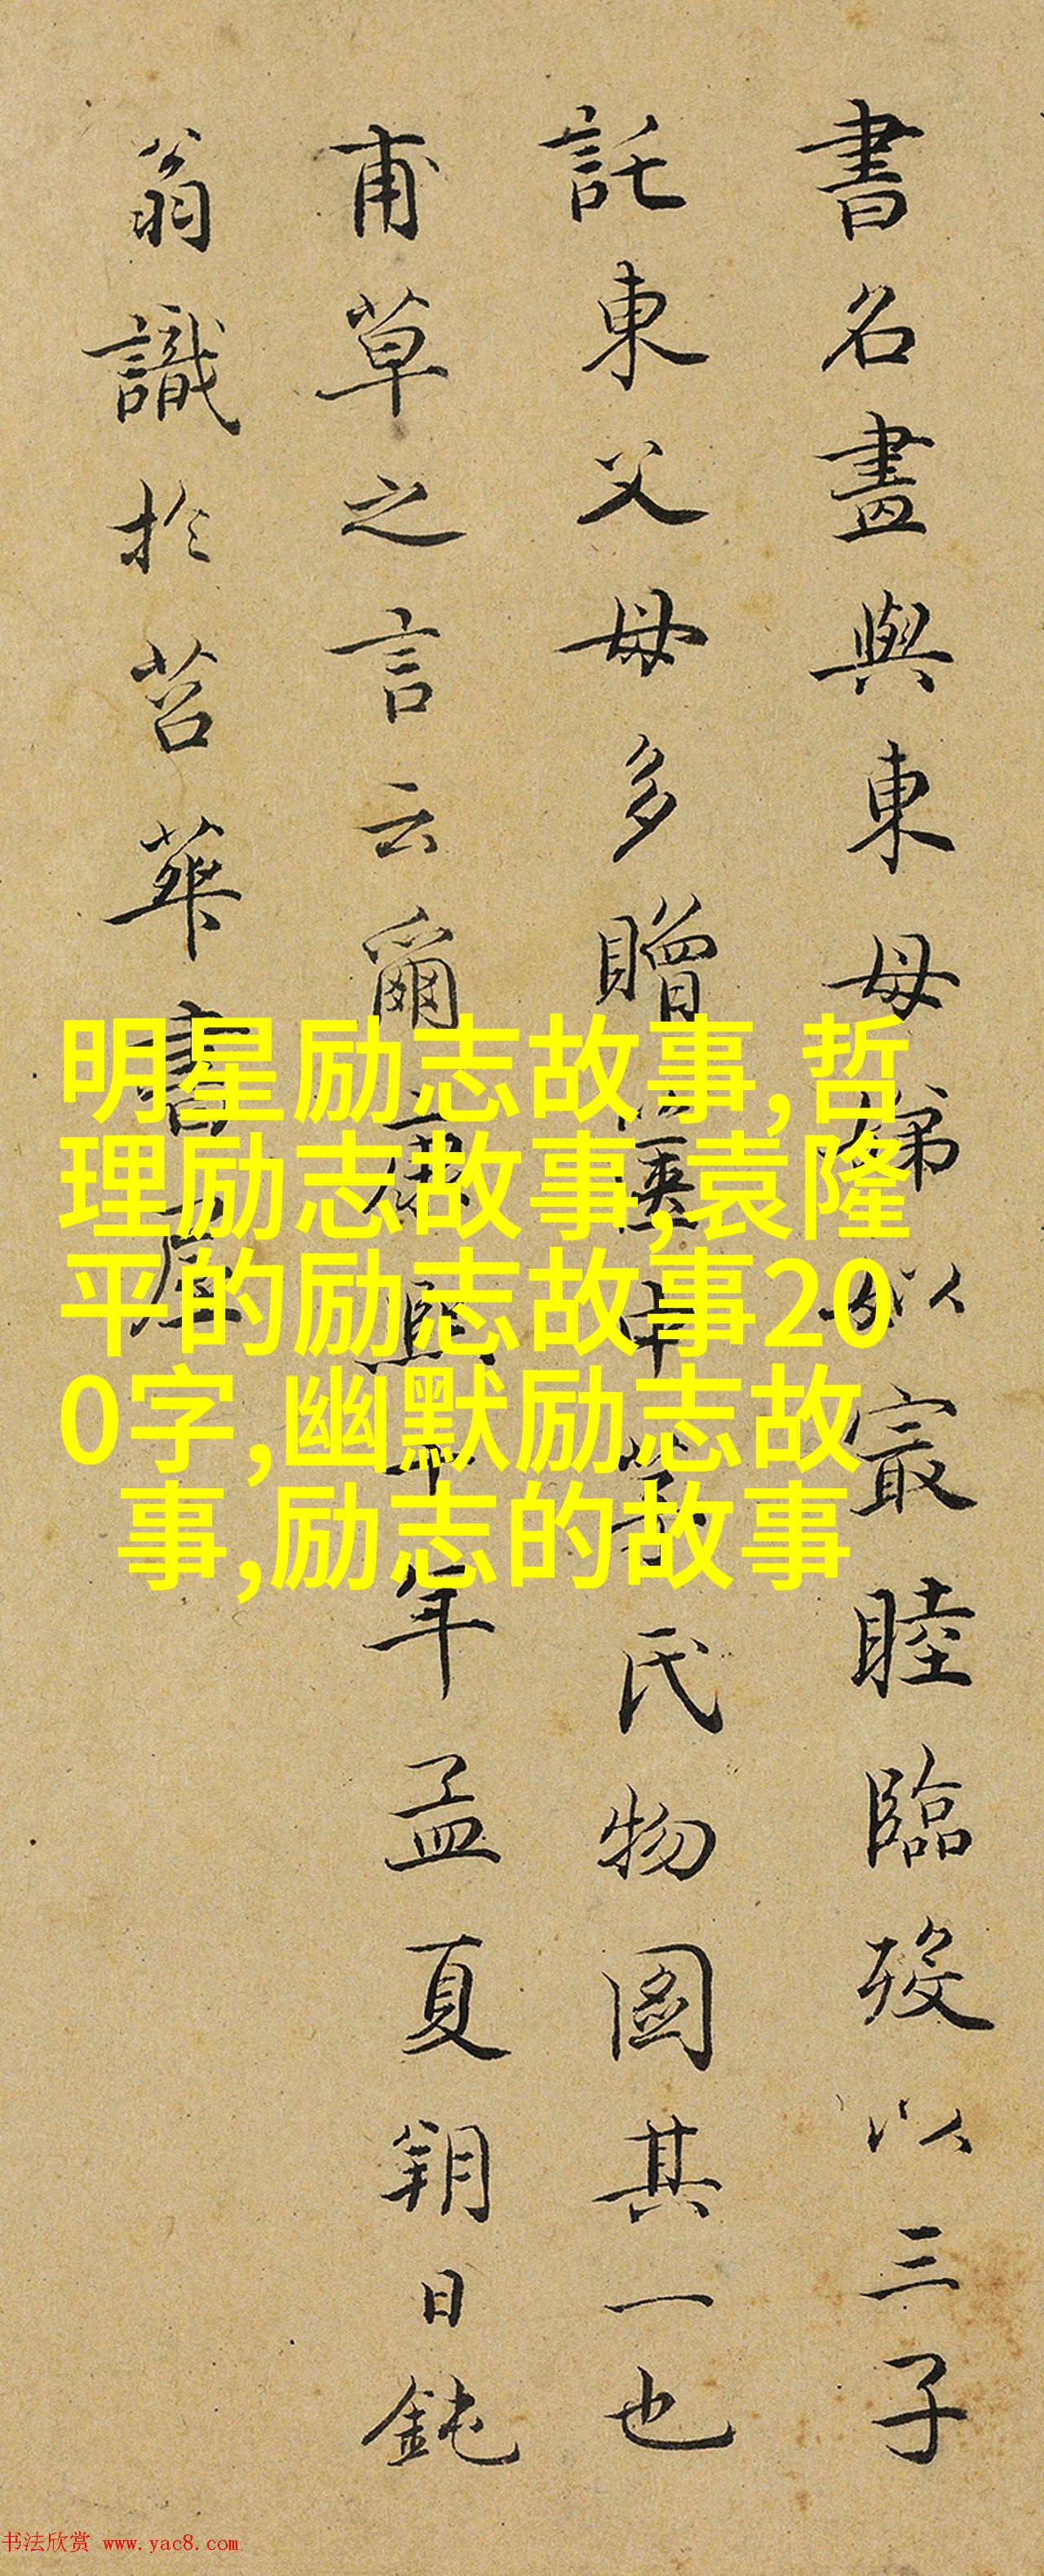 書名畫與東母娣姒㝡睦臨歿以三子
託東父母多贈中氏物圖其一也
甫草之言云爾康熙十年孟夏朔日鈍
翁識於苕華書屋
明星励志故事,哲
理励志故事,袁隆
平的励志故事20
0字,幽默励志故
事,励志的故事
书法欣赏 www.yac8.com